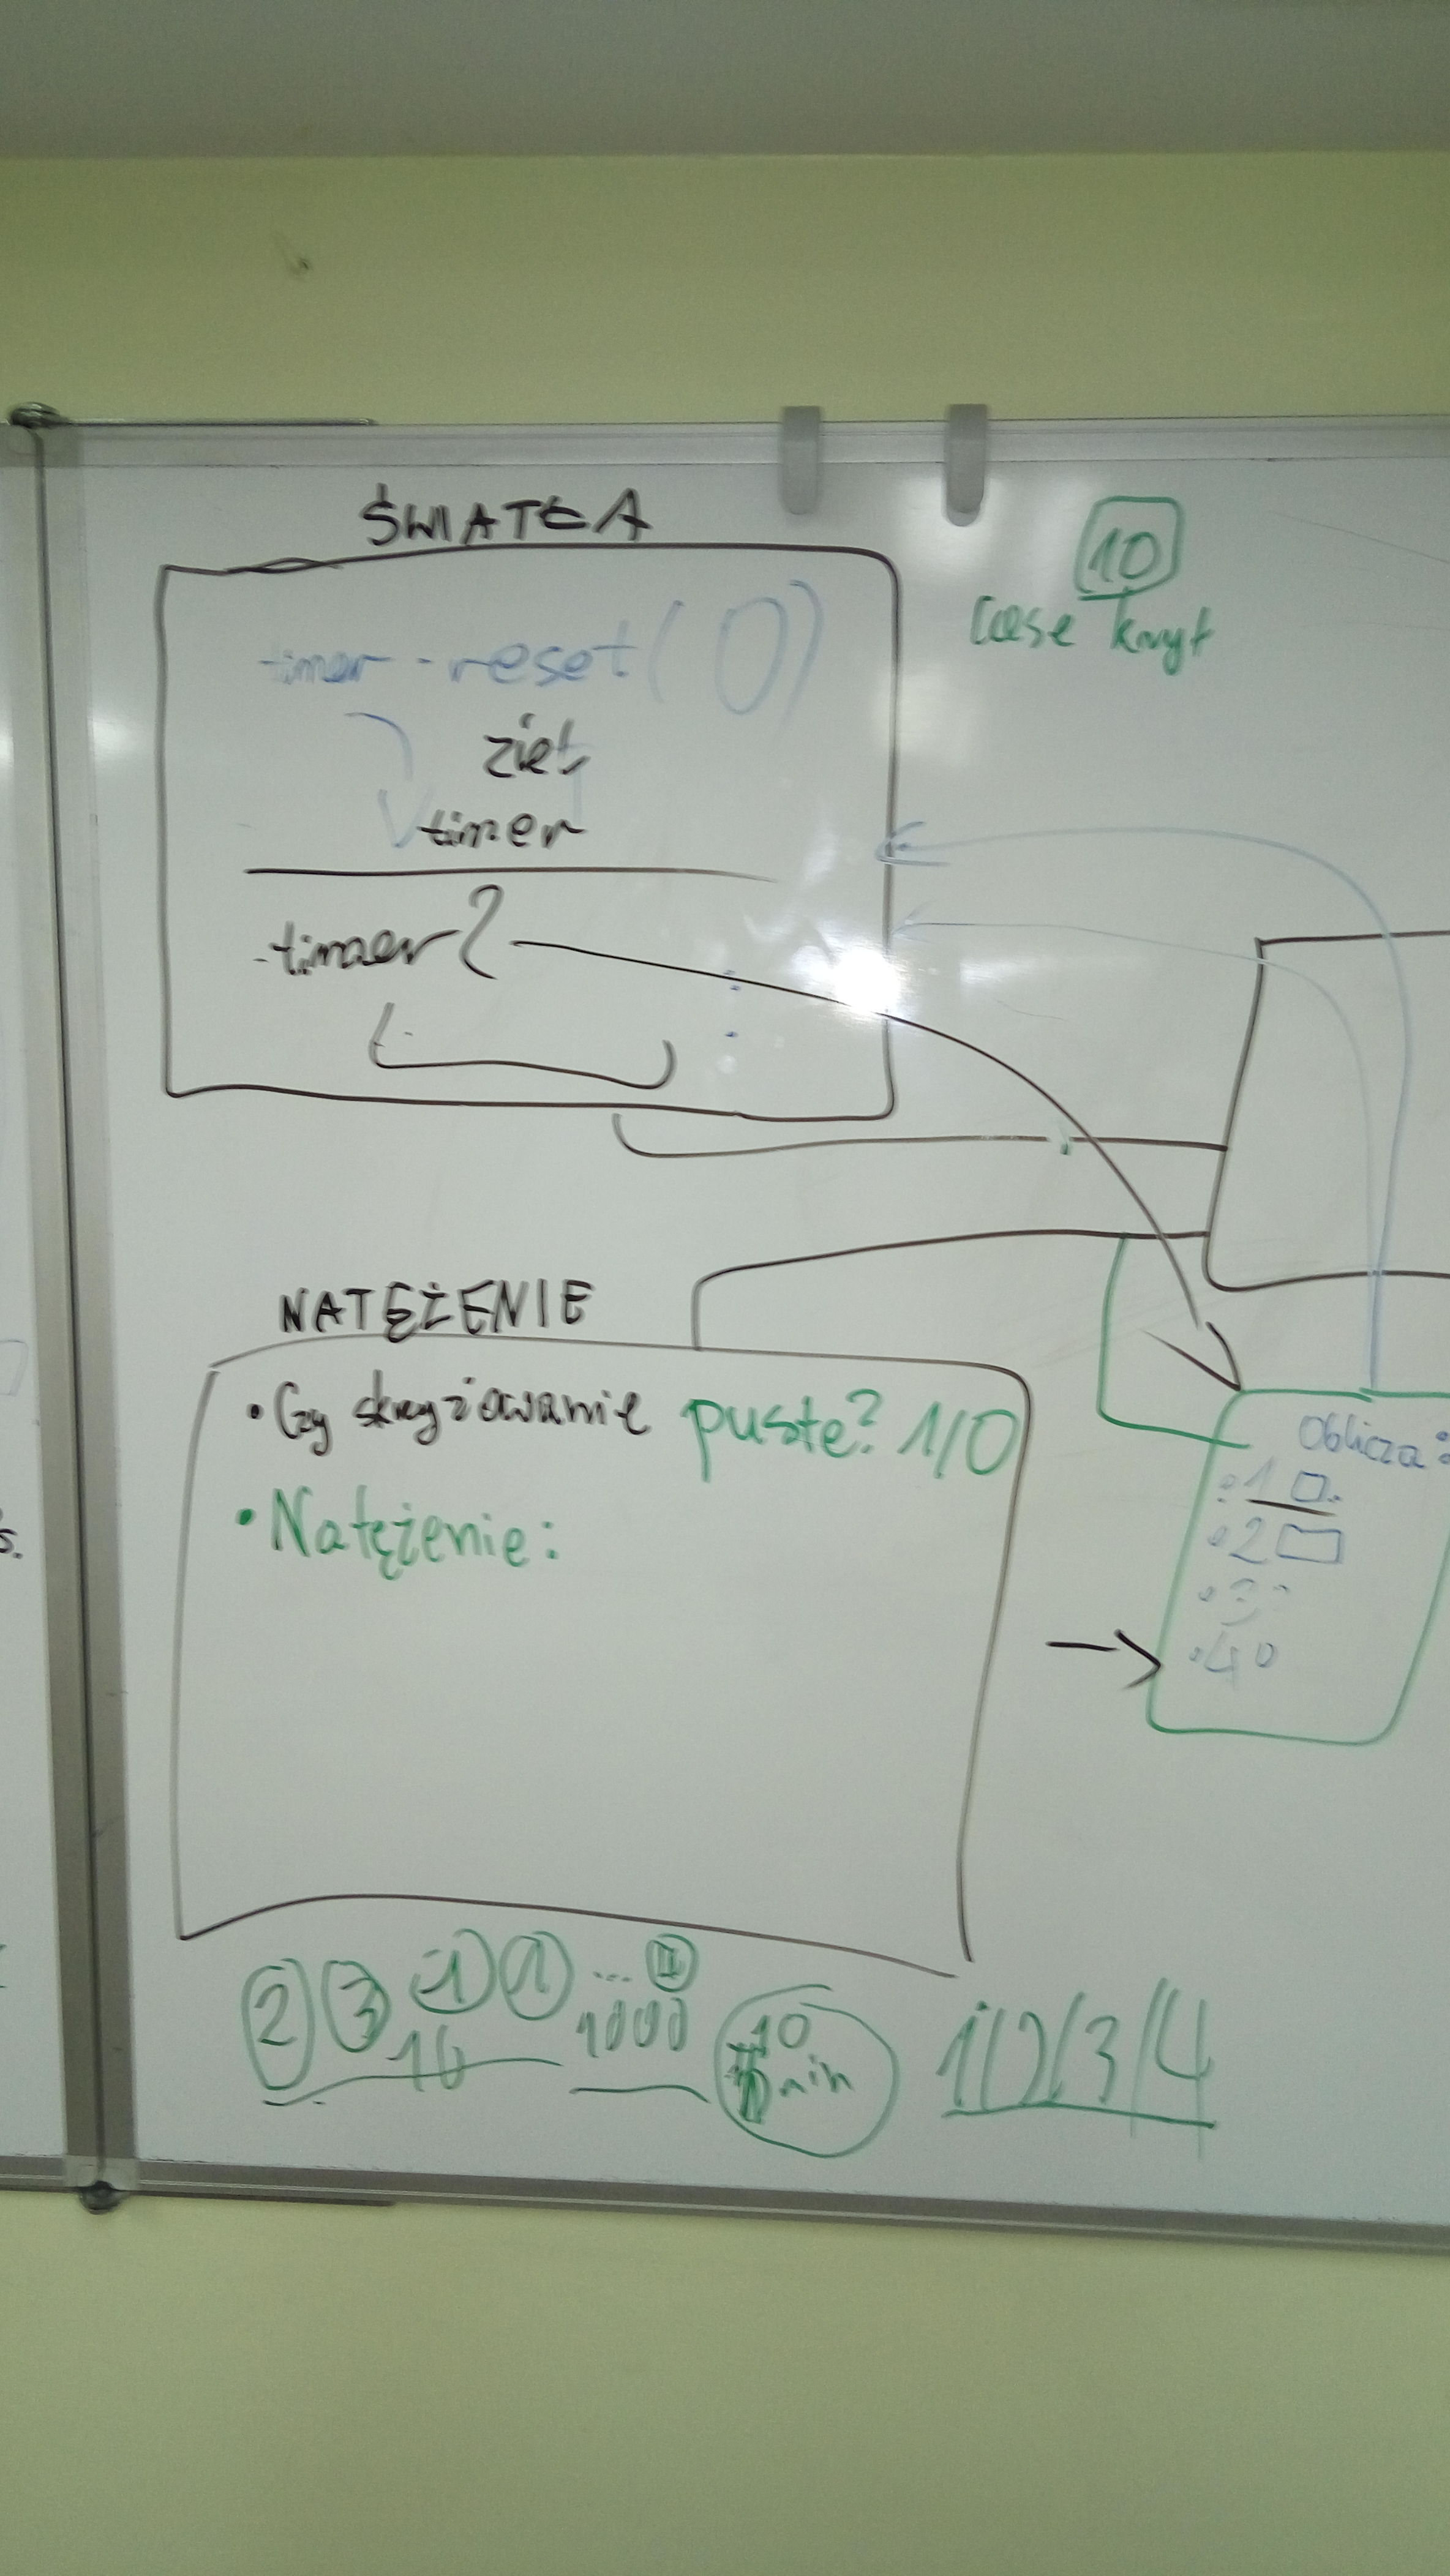 ŚWIATŁA
10
case kryt
timer-reset(0)
timer
timer?
NATĘŻENIE
• Czy skrzyżowanie puste? 1/0
• Natężenie:
Oblicza:
• 1
• 2
• 3
• 4
2 3 1 1 ...
10
1000
10
min
1/2/3/4
s.